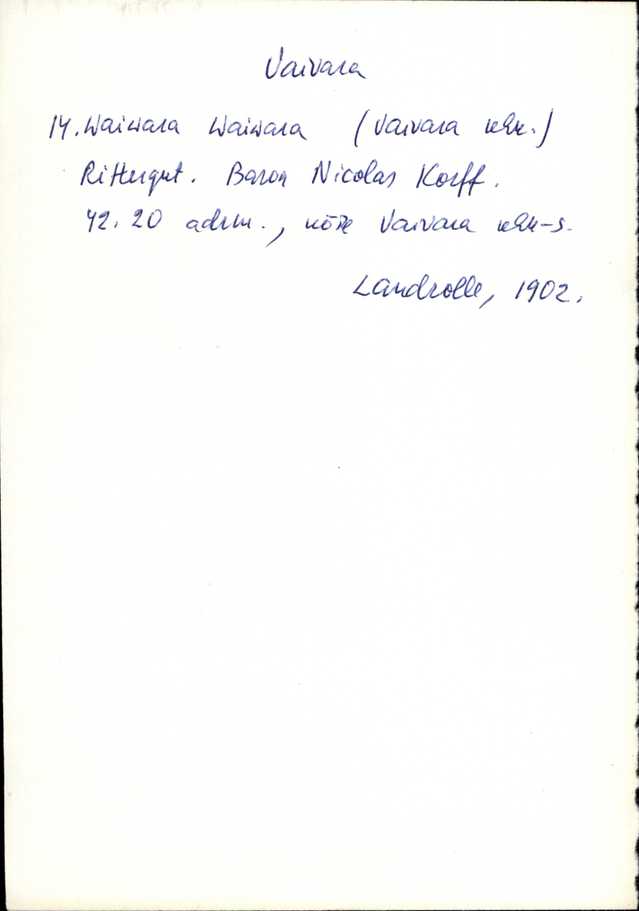 Vaivara
14. Waiwara Waiwara (Vaivara khk.)
Rittergut. Baron Nicolas Korff.
42.20 adrm., kõik Vaivara khk-s.
Landrolle, 1902.